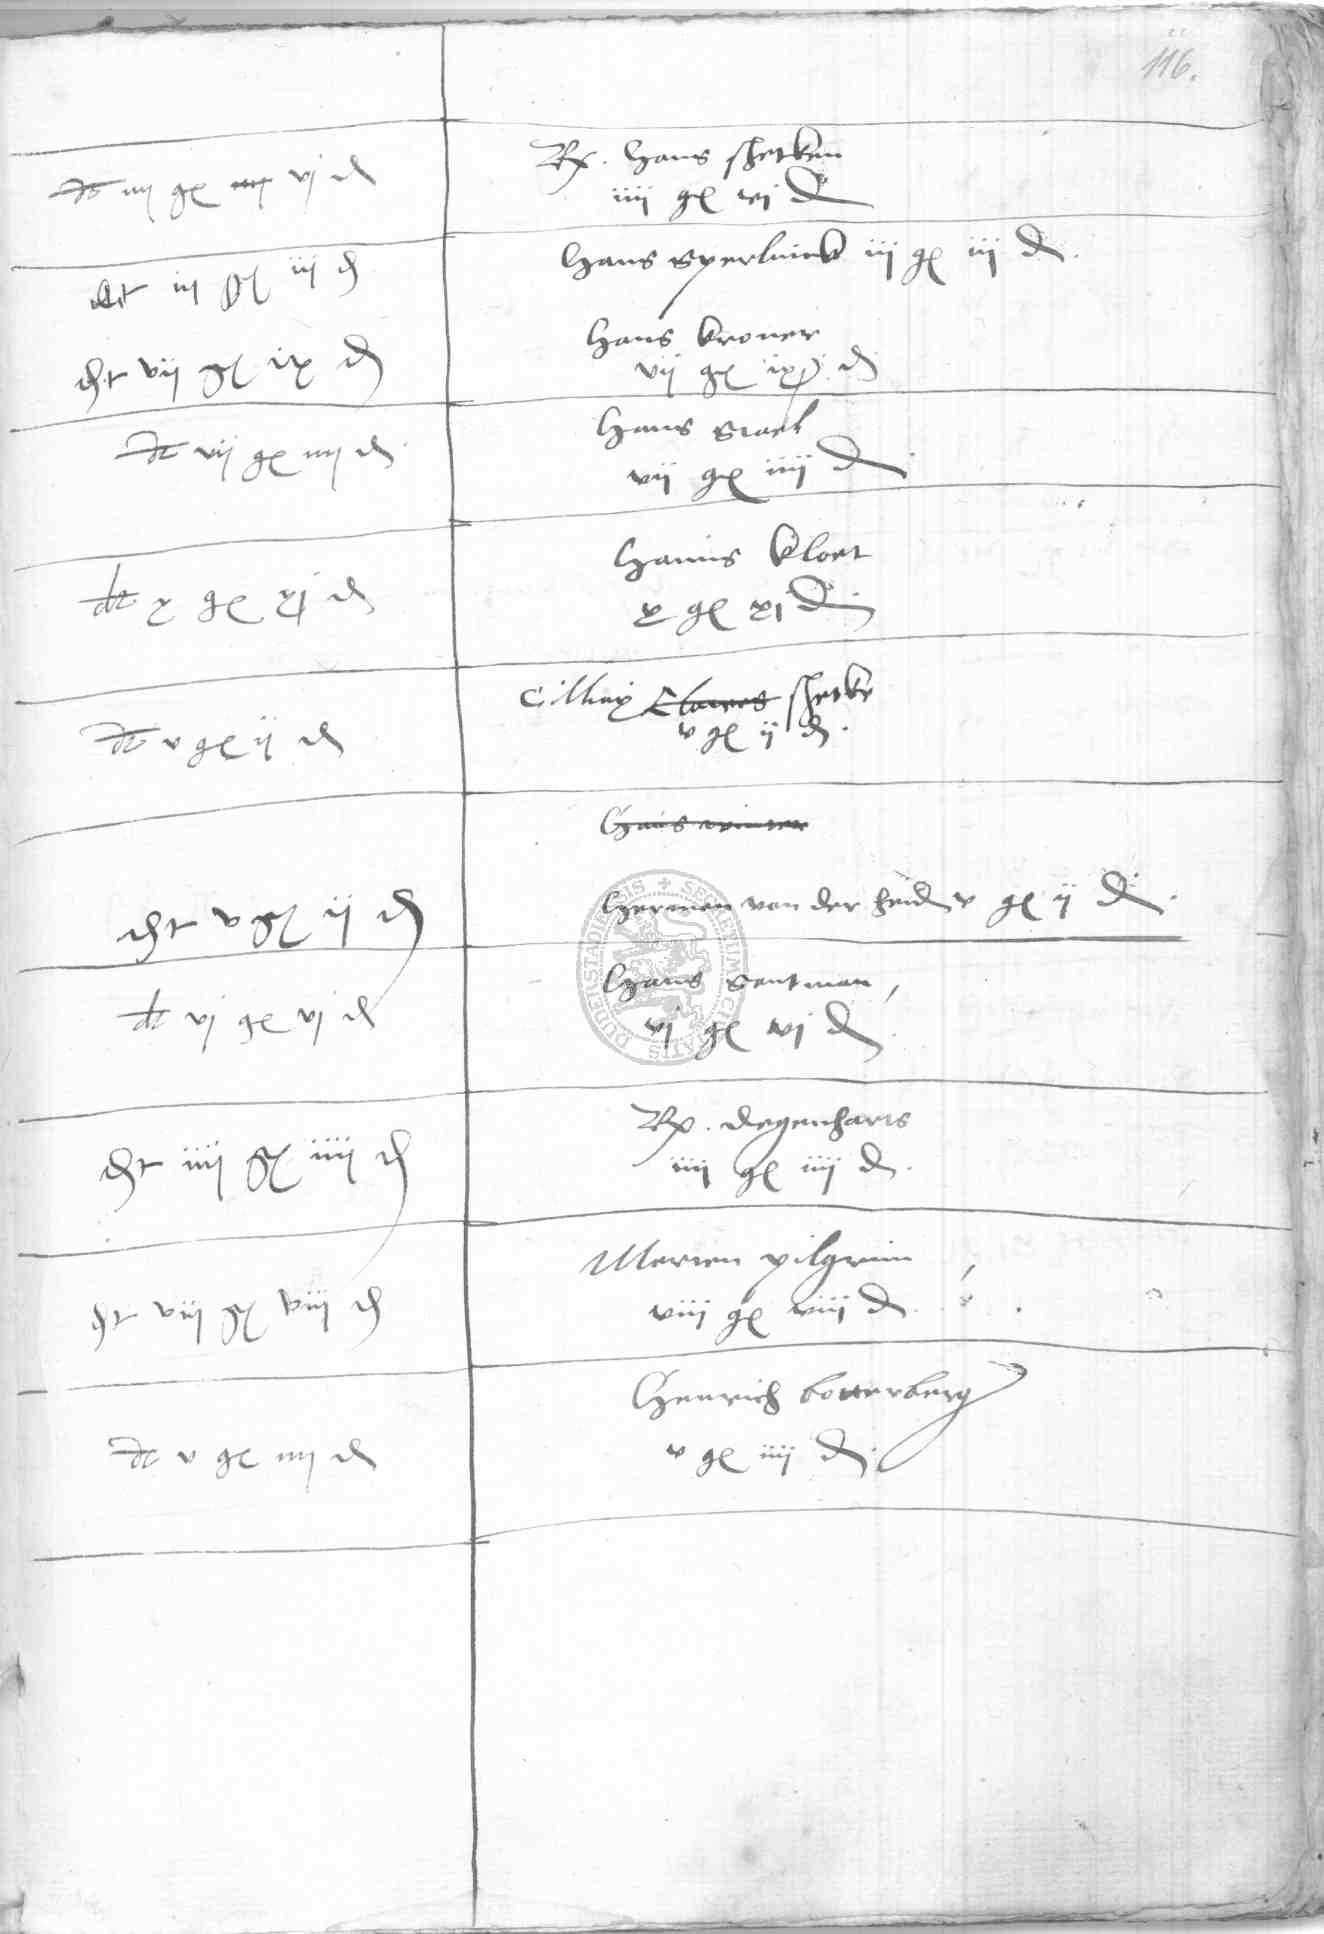 116.
dt iiij gl vj d
Rx. Hans shetken
iiij gl vj d
dt iij gl iij d
Hans Sperlinck iij gl iij d.
dt vij gl ix d
Hans kroner
vij gl ix d
dt vij gl iiij d
Hans Stael
vij gl iiij d
dt x gl xj d
Hanns kloet
x gl xj d.
dt v gl ij d
Cilliax Clawes shetke
v gl ij d.
Hans winter
dt v gl ij d
Herman von der heid v gl ij d.
dt vj gl vj d
Hans Sentman
vj gl vj d.
dt iiij gl iiij d
Rx. degenharts
iiij gl iiij d.
dt viij gl viij d
Merten pilgrim
viij gl viij d.
dt v gl iiij d
Henrich botterberg
v gl iiij d.
SECRETUM CIVITATIS DUDERSTADIENSIS